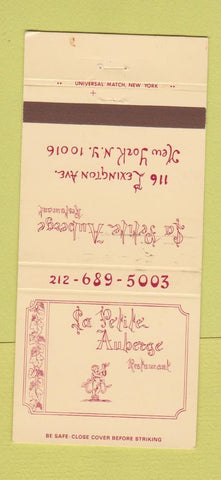 UNIVERSAL MATCH, NEW YORK
La Petite Auberge
Restaurant
116 Lexington Ave.
New York N.Y. 10016
212-689-5003
La Petite
Auberge
Restaurant
BE SAFE-CLOSE COVER BEFORE STRIKING